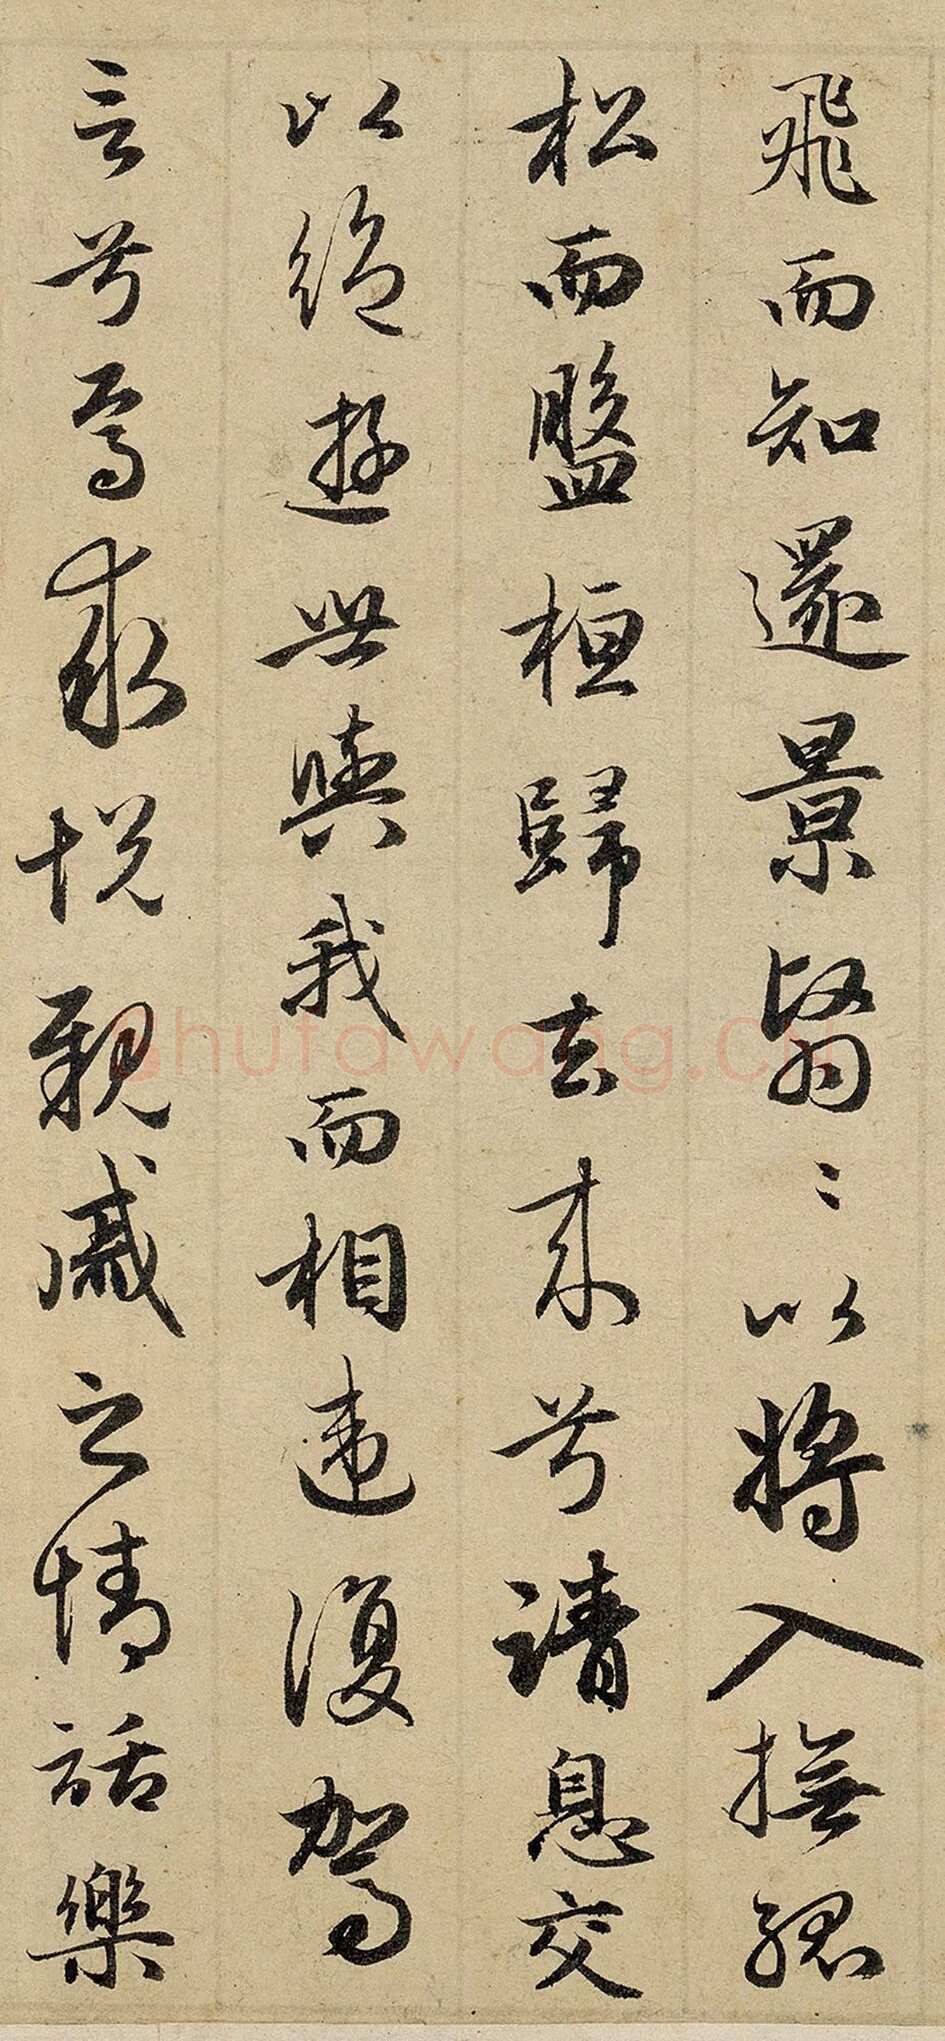 飛而知還景翳〻以將入撫孤
松而盤桓歸去来兮請息交
以絕遊世與我而相違復駕
言兮焉求悅親戚之情話樂
Shufawang.CN